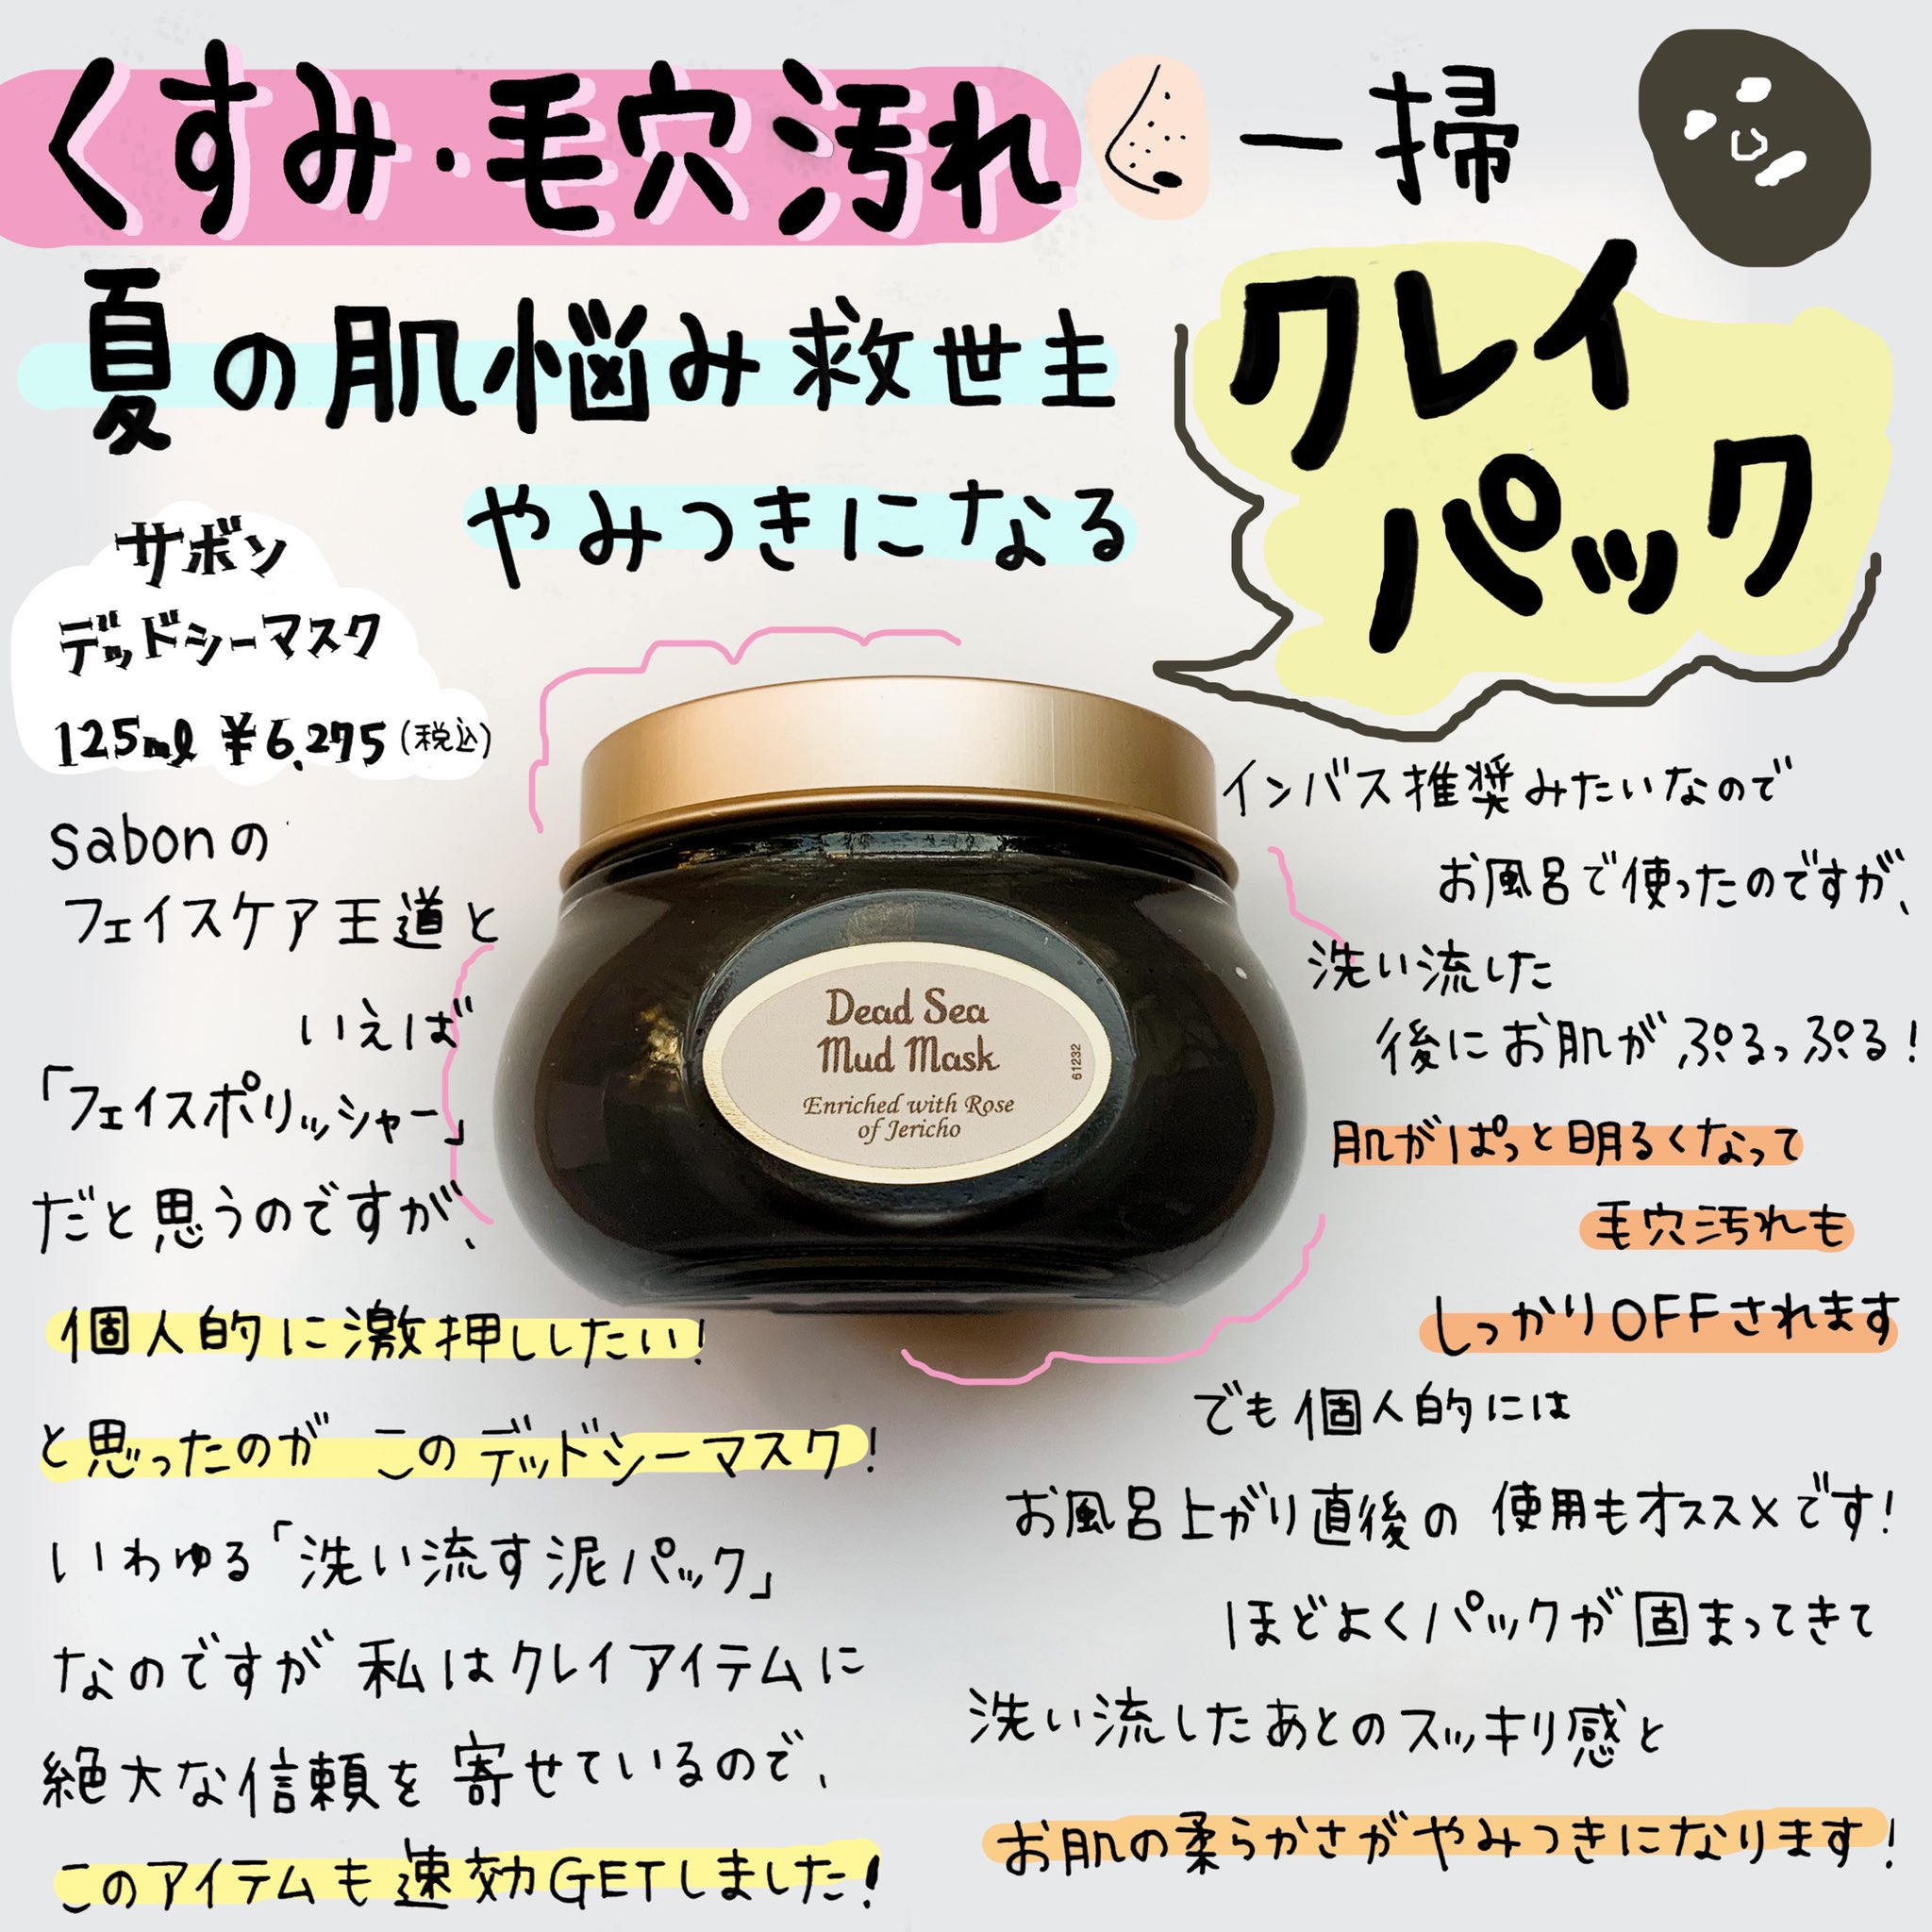 くすみ・毛穴汚れ一掃
夏の肌悩み救世主
やみつきになる
クレイ
パック
サボン
デッドシーマスク
125ml ¥6,275(税込)
sabonの
フェイスケア王道と
いえば
「フェイスポリッシャー」
だと思うのですが、
個人的に激押ししたい!
と思ったのが このデッドシーマスク!
いわゆる「洗い流す泥パック」
なのですが 私はクレイアイテムに
絶大な信頼を寄せているので、
このアイテムも速効GETしました!
Dead Sea
Mud Mask
Enriched with Rose
of Jericho
61232
インバス推奨みたいなので
お風呂で使ったのですが、
洗い流した
後にお肌がぷるっぷる!
肌がぱっと明るくなって
毛穴汚れも
しっかりOFFされます
でも個人的には
お風呂上がり直後の 使用もオススメです!
ほどよくパックが固まってきて
洗い流したあとのスッキリ感と
お肌の柔らかさがやみつきになります!